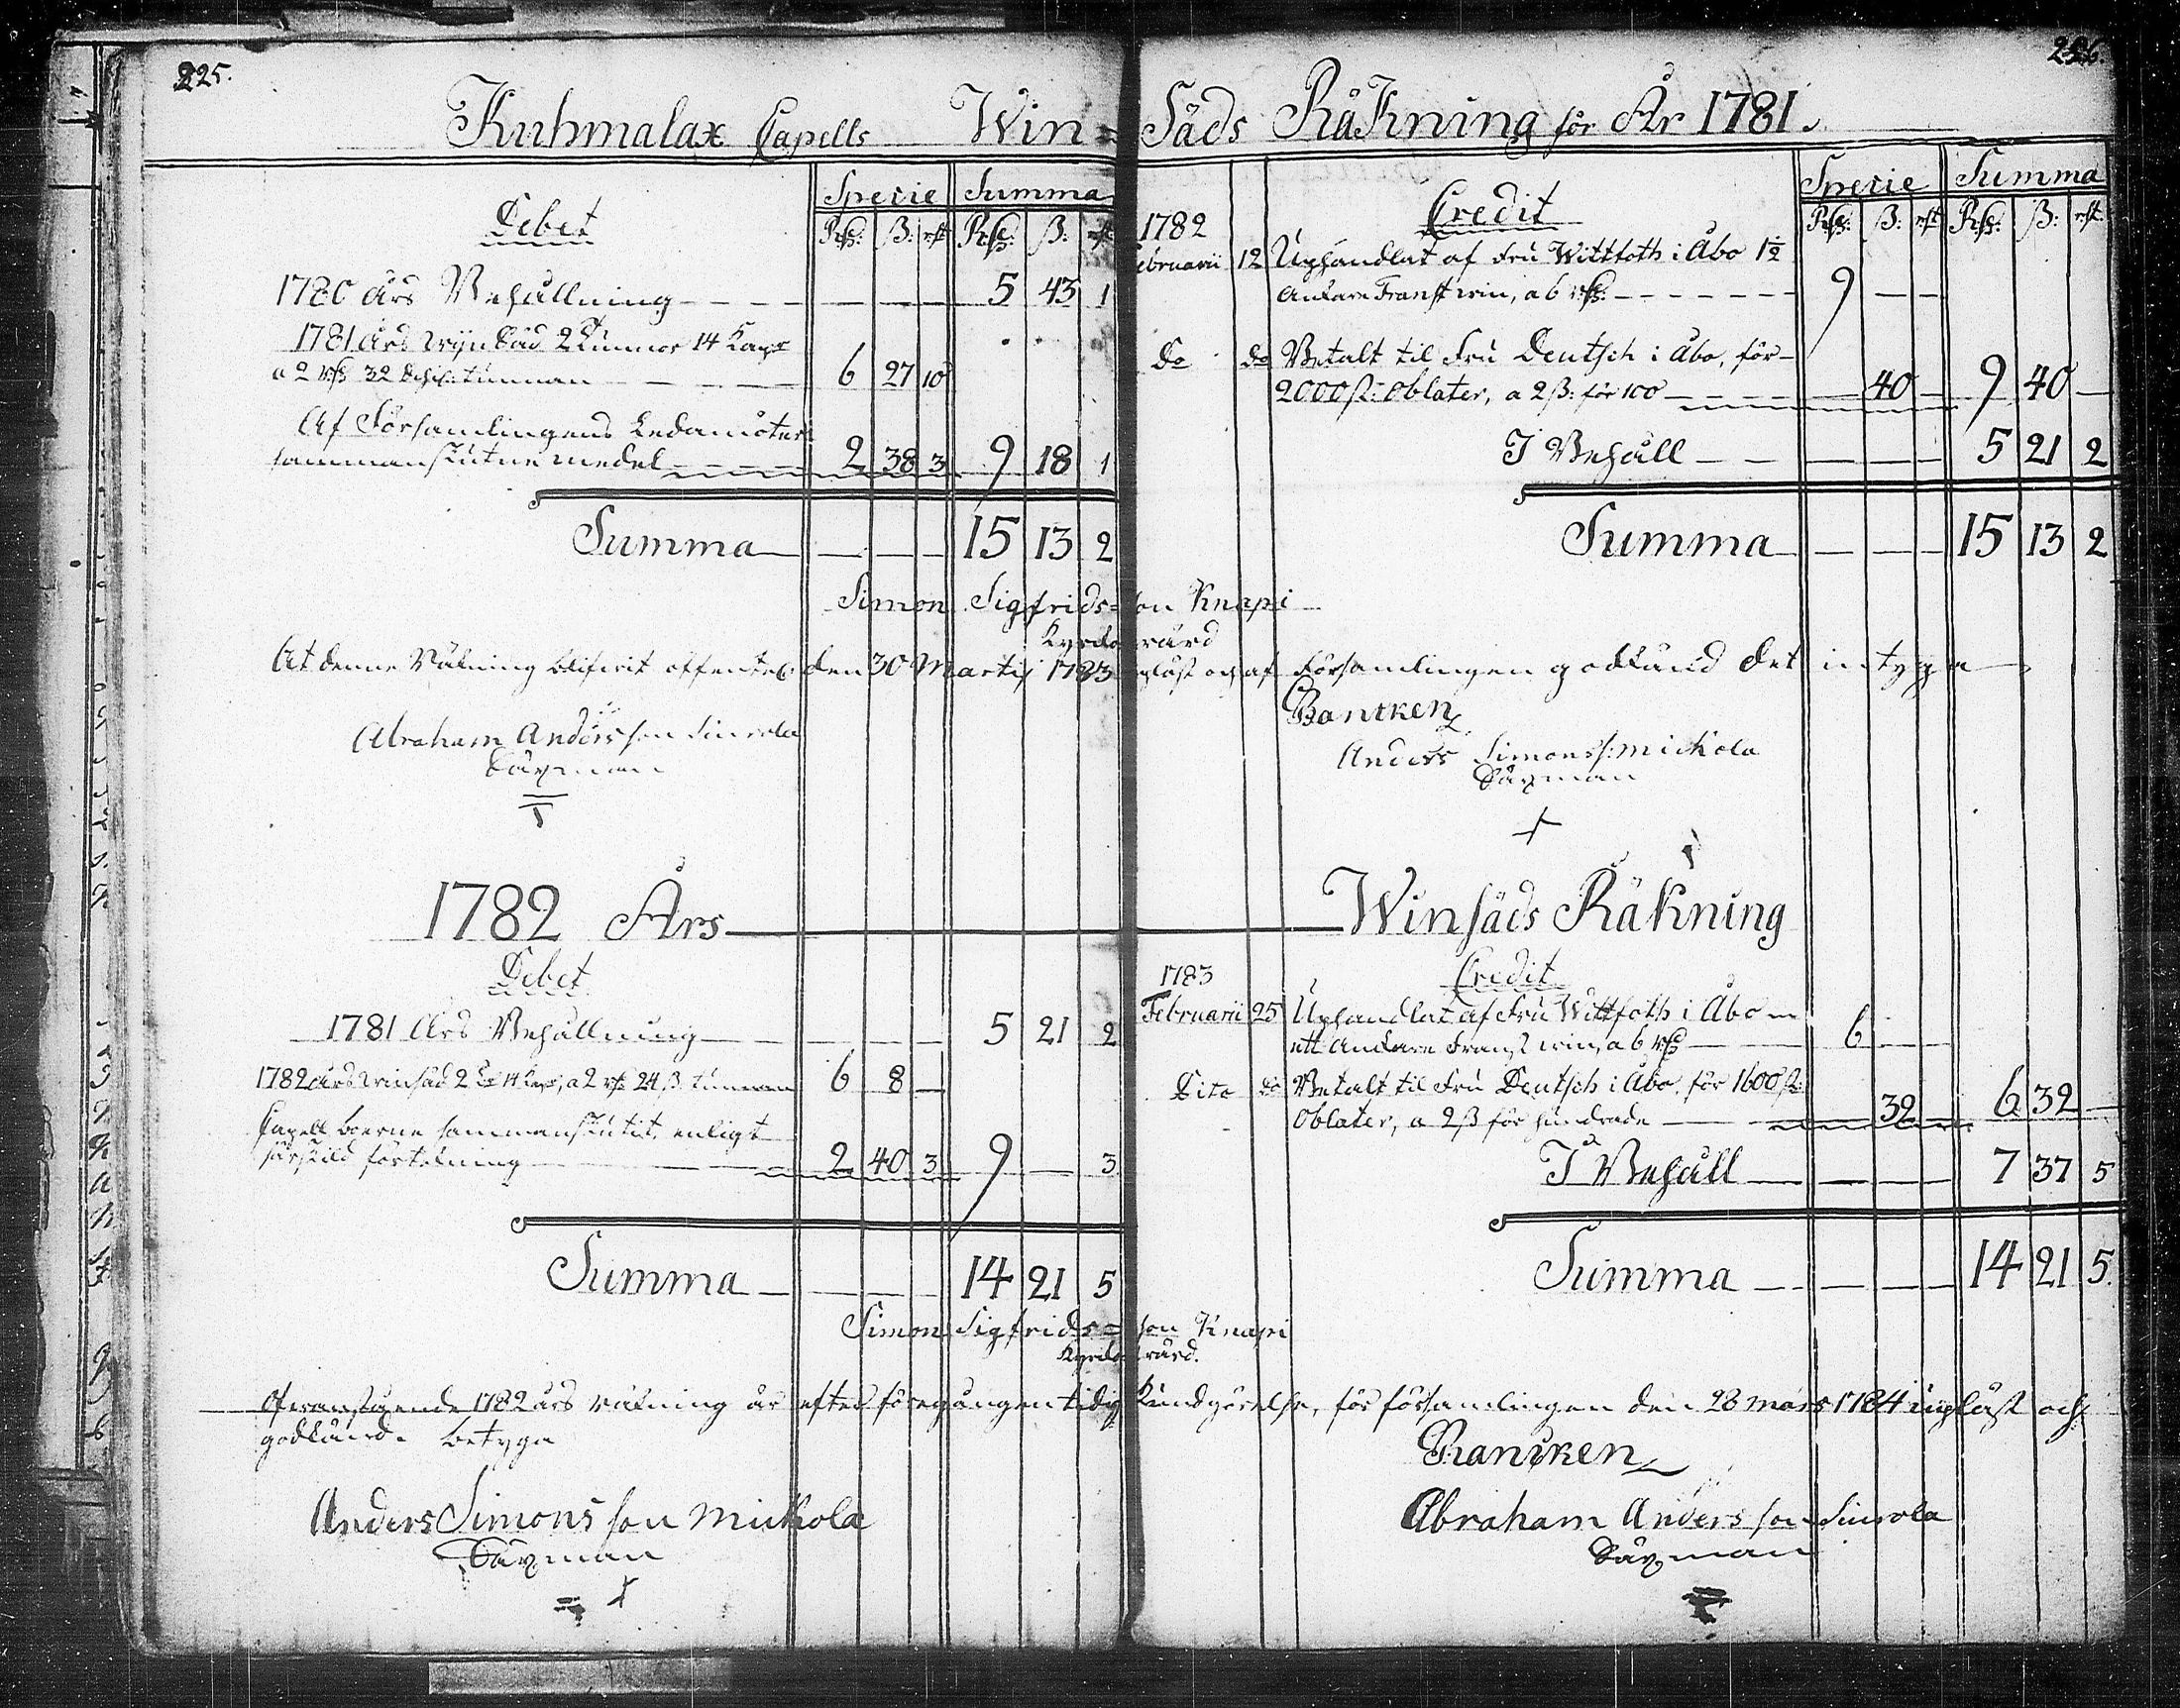 225.
226.
Kuhmalax Capells Win= Säds Räkning för År 1781.
Debet
Specie Summa
Rd: ß: rst Rd: ß: rst
1780 Års Behållning 5 43 1
1781 Års Wijnsäd 2 Tunnor 14 Kapr
a 2 Rd 32 Schil: tunnan 6 27 10
Af Församlingens Ledamöter
sammanskutne medel 2 38 3 9 18 1
Summa 15 13 2
1782 Credit
Specie Summa
Rd: ß: rst Rd: ß: rst
Februarii 12 Uphandlat af Fru Wittfoth i Åbo 1½
Ankare Franst win, a 6 Rd: 9 — —
Do Do Betalt til Fru Deutsch i Åbo, för
2000 st: Oblater, a 2 ß: för 100 40 — 9 40 —
I Behåll 5 21 2
Summa 15 13 2
Simon Sigfrids=son Knapi
Kyrckowärd
At denne Räkning blifwit offentel. den 30 Martij 1783 upläst och af Församlingen godkänd det intyga
Abraham Andersson Sinrola
Säxman
Rancken
Anders Simonss: Mickola
Säxman
1782 Års Winsäds Räkning
Debet
1781 Års Behållning 5 21 2
1782 Års winsäd 2 Tr 14 Kapr, a 2 rd 24 ß tunnan 6 8 —
Capell boerne sammanskutit, enligt
särskild förtekning 2 40 3 9 — 3
Summa 14 21 5
1783 Credit
Februarii 25 Uphandlat af Fru Wittfoth i Åbo
ett Ankare Franst win, a 6 Rd 6 — —
Dito do Betalt til Fru Deutsch i Åbo, för 1600 st:
Oblater, a 2 ß för hundrade 32 — 6 32 —
I Behåll 7 37 5
Summa 14 21 5
Simon Sigfrids=son Knapi
Kyrckowärd.
Ofwanstående 1782 års räkning är efter föregången tidig kundgörelse, för församlingen den 28 mars 1784 upläst och
godkänd. betyga
Rancken
Anders Simons son Mickola
Säxman
Abraham Anders son Sinrola
Säxman